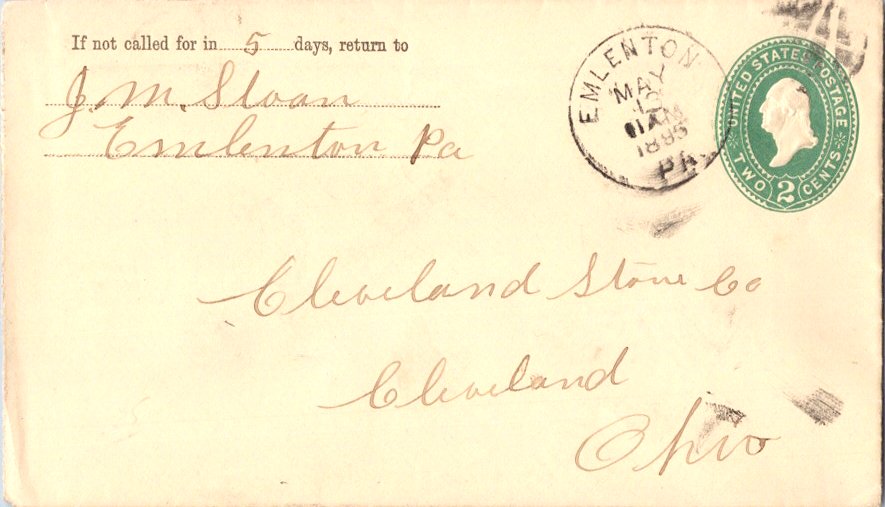 If not called for in 5 days, return to
J. M. Sloan
Emlenton Pa
EMLENTON
MAY
11 AM
PA
UNITED STATES POSTAGE
TWO 2 CENTS
Cleveland Stone Co
Cleveland
Ohio